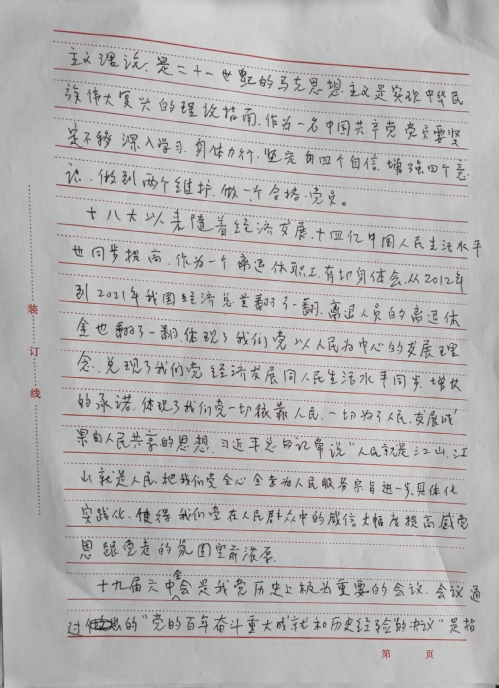 主义理论,是二十一世纪的马克思想主义是实现中华民
族伟大复兴的理论指南,作为一名中国共产党党员要坚
定不移深入学习,身体力行,坚定四个自信,增强四个意
识,做到两个维护,做一个合格党员。
十八大以来随着经济发展,十四亿中国人民生活水平
也同步提高,作为一个离退休职工,有切身体会,从2012年
到2021年我国经济总量翻了一翻,离退人员的离退休
金也翻了一翻,体现了我们党以人民为中心的发展理
念,兑现了我们党经济发展同人民生活水平同步增长
的承诺,体现了我们党一切依靠人民,一切为了人民,发展成
果由人民共享的思想,习近平总书记常说“人民就是江山,江
山就是人民,把我们党全心全意为人民服务宗旨进一步具体化
实践化,使得我们党在人民群众中的威信大幅度提高感党
恩跟党走的氛围空前浓厚
十九届六中全会是我党历史上极为重要的会议,会议通
过的“党的百年奋斗重大成就和历史经验的决议”是指
装
订
线
第 页